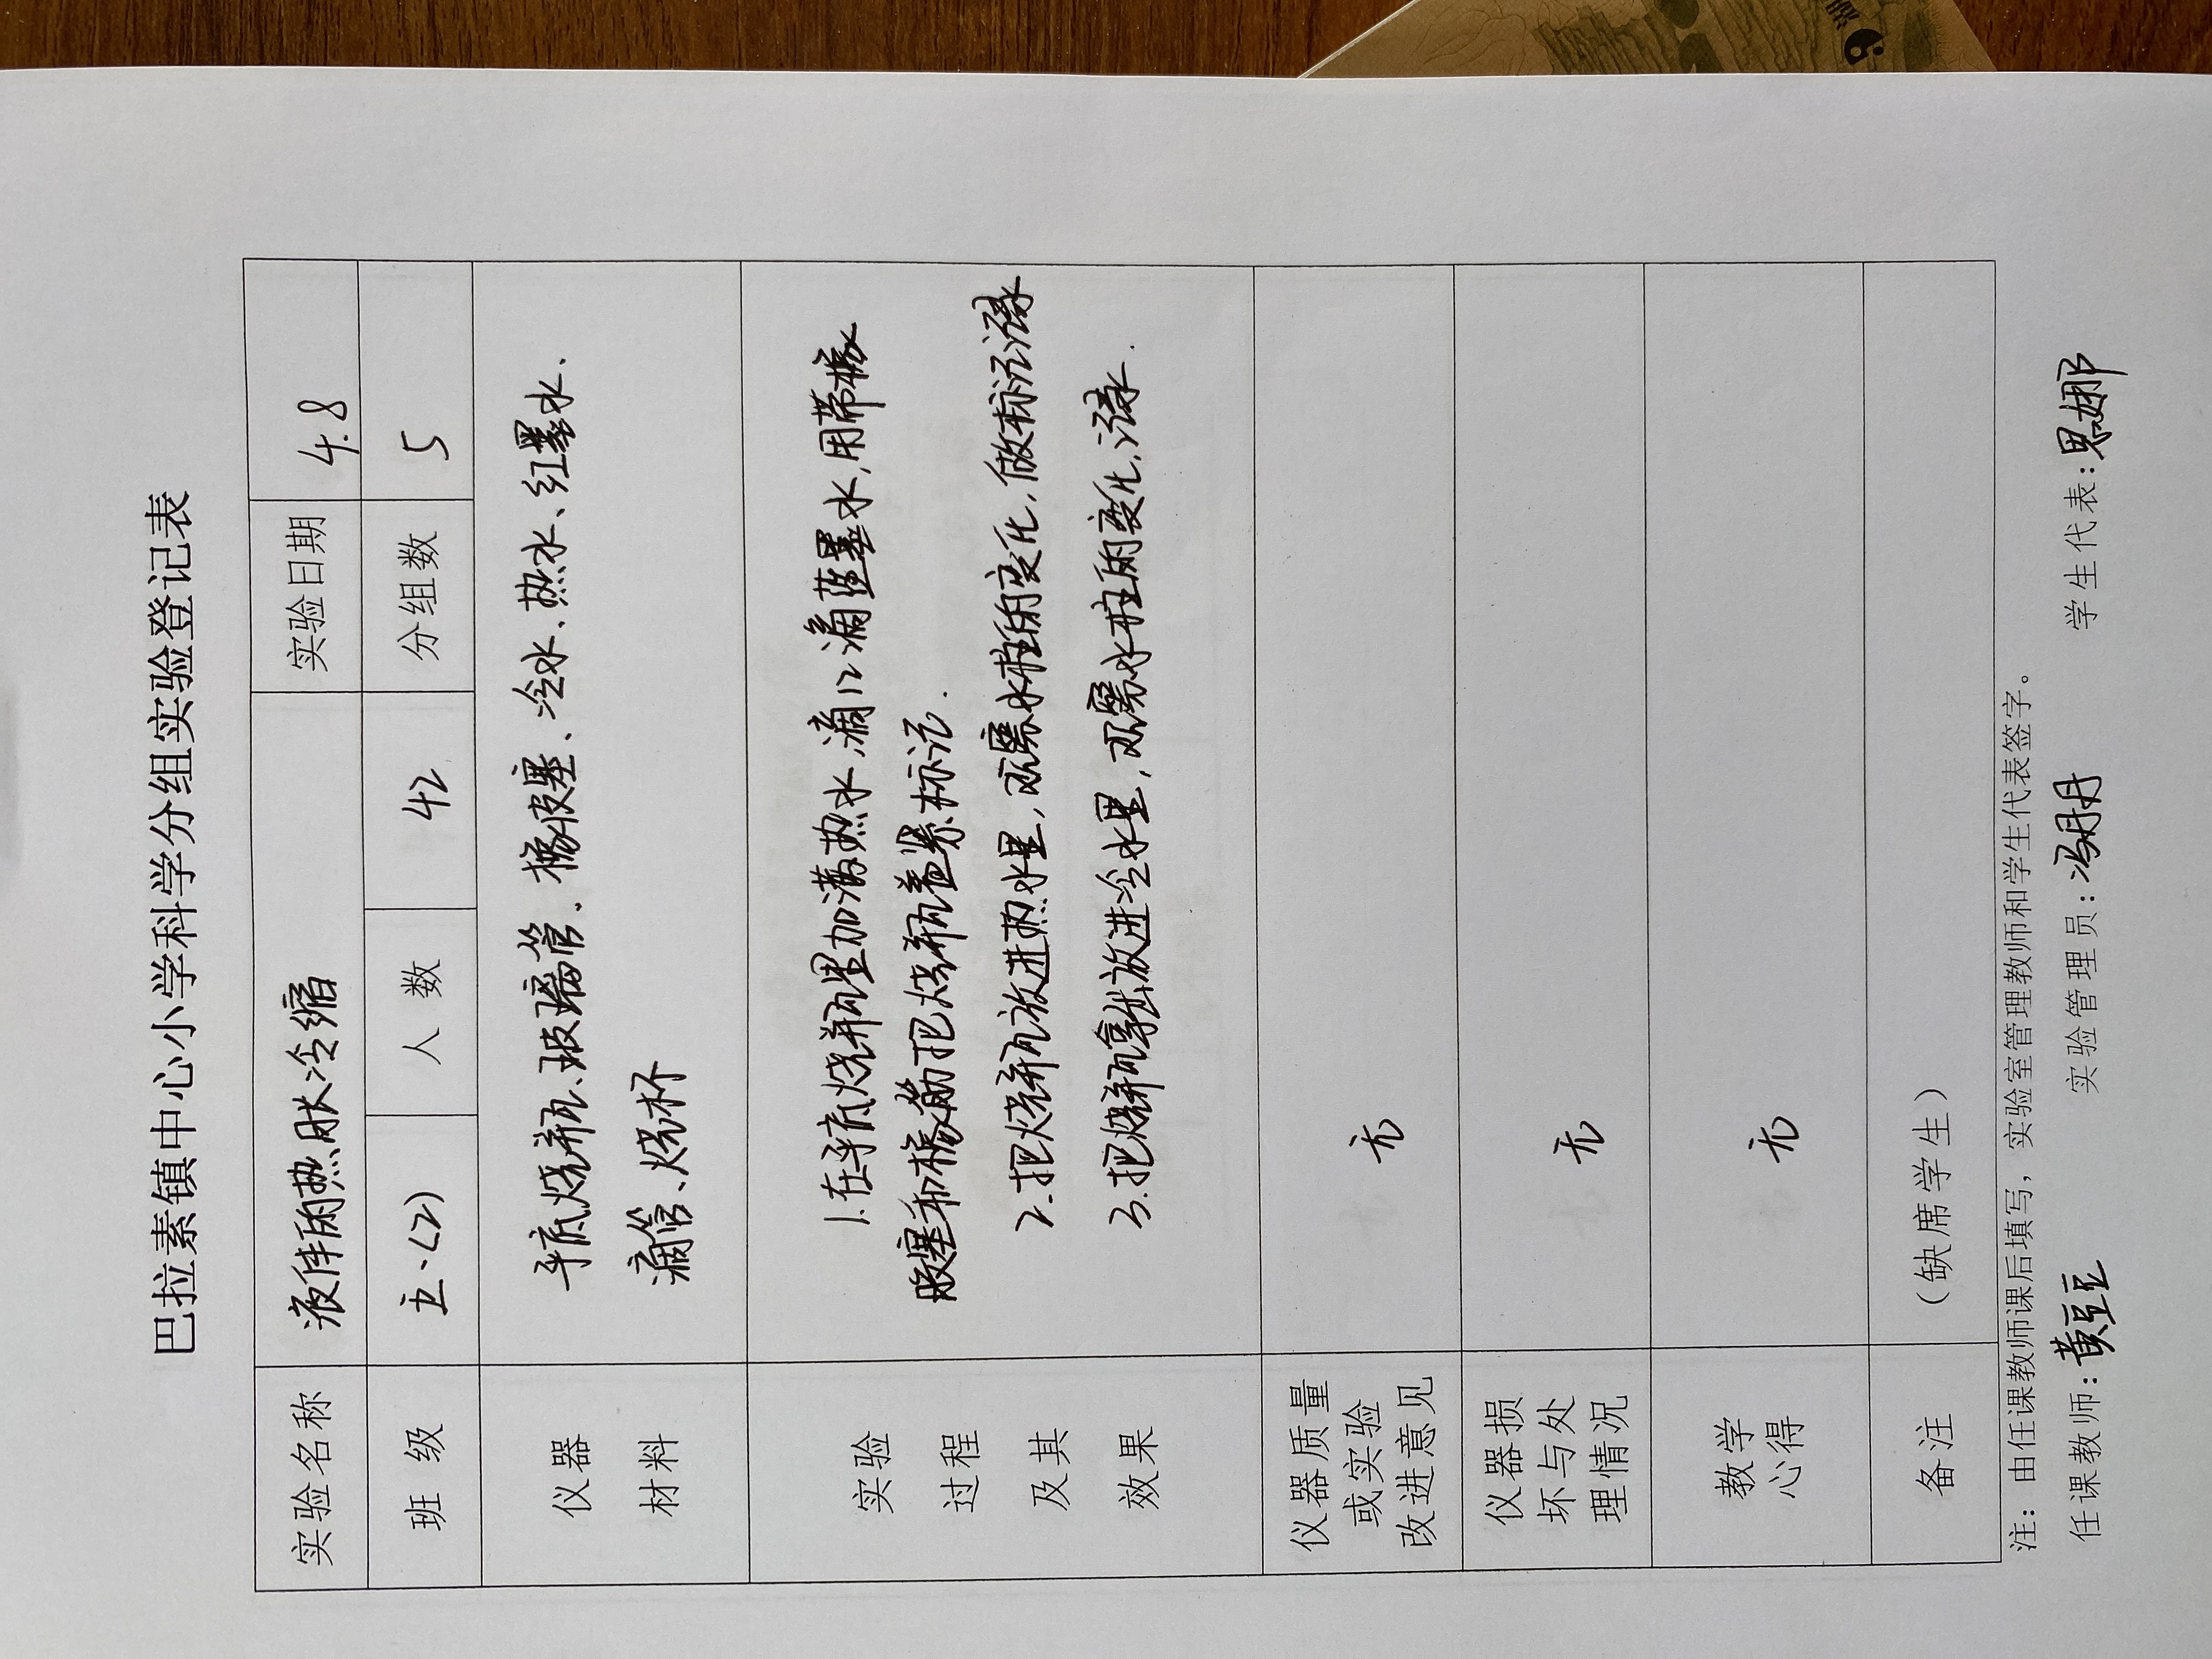 巴拉素镇中心小学科学分组实验登记表
实验名称 液体的热胀冷缩 实验日期 4.8
班 级 五·(2) 人 数 42 分组数 5
仪器
材料
平底烧瓶、玻璃管、橡皮塞、冷水、热水、红墨水.
滴管、烧杯
实验
过程
及其
效果
1.在平底烧瓶里加满热水,滴几滴蓝墨水,用带橡
胶塞和橡筋把烧瓶盖紧.标记.
2.把烧瓶放进热水里,观察水柱的变化,做标记记录
3.把烧瓶拿出放进冷水里,观察水柱的变化,记录.
仪器质量
或实验
改进意见
无
仪器损
坏与处
理情况
无
教学
心得
无
备注 (缺席学生)
注：由任课教师课后填写，实验室管理教师和学生代表签字。
任课教师：黄豆豆 实验管理员：冯朋 学生代表：思娜